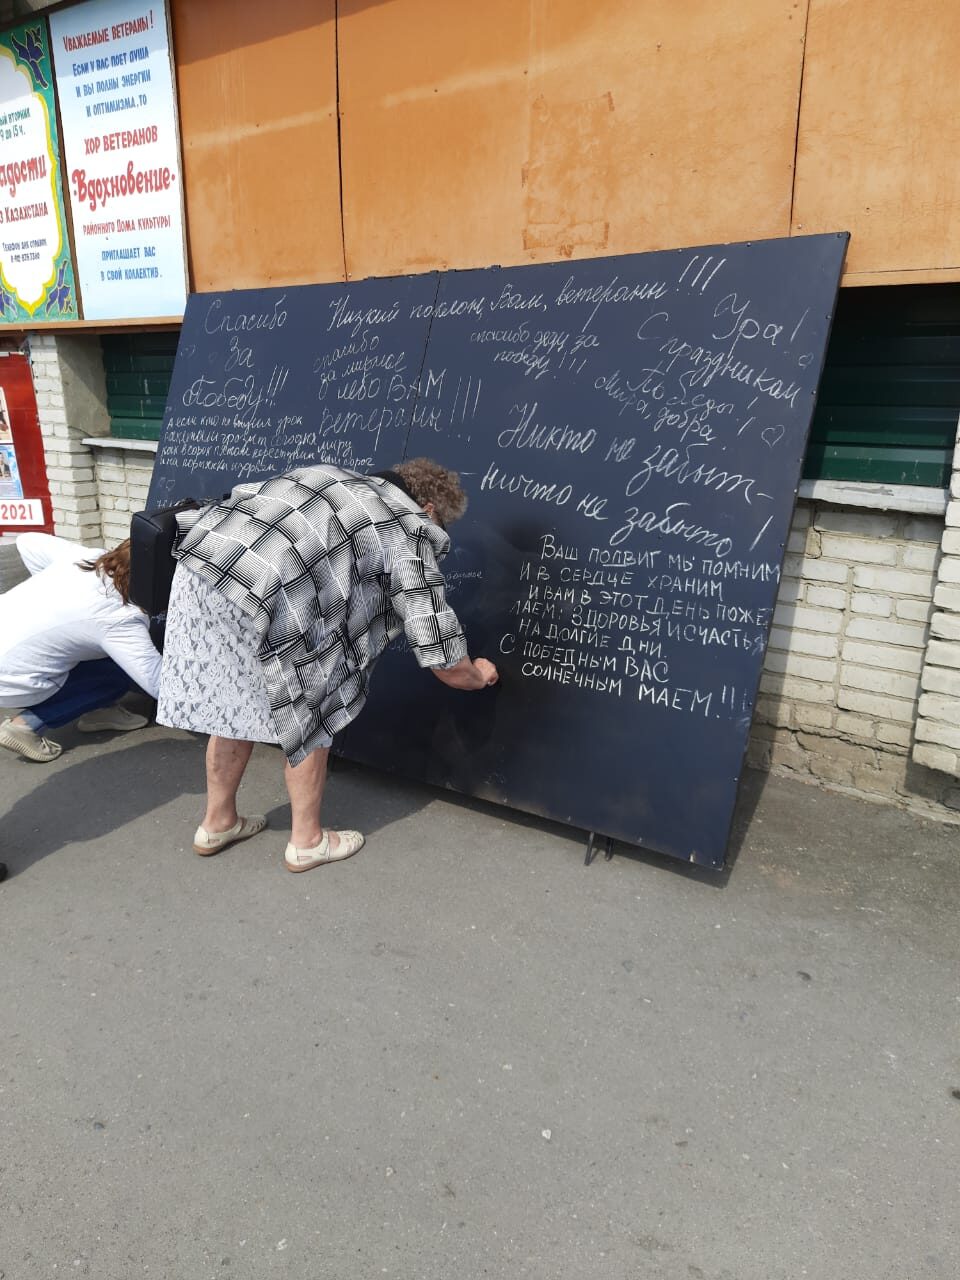 Уважаемые ветераны!
Если у вас поет душа
и вы полны энергии
и оптимизма, то
хор ветеранов
"Вдохновение"
районного Дома культуры
приглашает вас
в свой коллектив.
вторник
9 до 15 ч.
Казахстана
2021
Спасибо
За
Победу!!!
Низкий поклон, Вам, ветераны!!!
спасибо
за мирное
небо ВАМ
ветераны!!!
спасибо деду за
победу!!!
Ура!
С праздником
Победы!
Мира, добра!
А если кто не выучил урок
ракетами грозит сегодня миру
Никто не забыт –
– ничто не забыто!
ВАШ ПОДВИГ МЫ ПОМНИМ
И В СЕРДЦЕ ХРАНИМ
И ВАМ В ЭТОТ ДЕНЬ ПОЖЕ
ЛАЕМ: ЗДОРОВЬЯ И СЧАСТЬЯ
НА ДОЛГИЕ ДНИ.
С ПОБЕДНЫМ ВАС
СОЛНЕЧНЫМ МАЕМ!!!